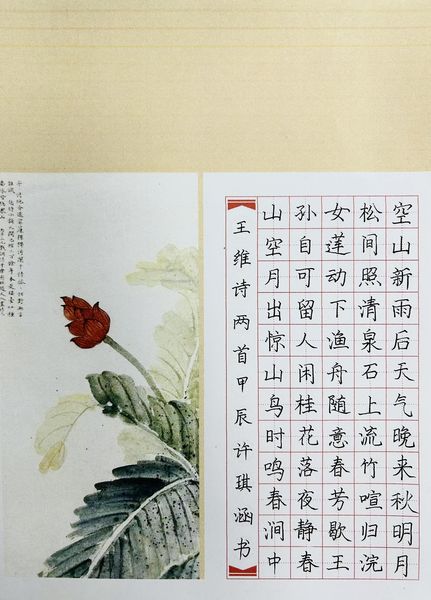 空山新雨后天气晚来秋明月
松间照清泉石上流竹喧归浣
女莲动下渔舟随意春芳歇王
孙自可留人闲桂花落夜静春
山空月出惊山鸟时鸣春涧中
王维诗两首甲辰许琪涵书